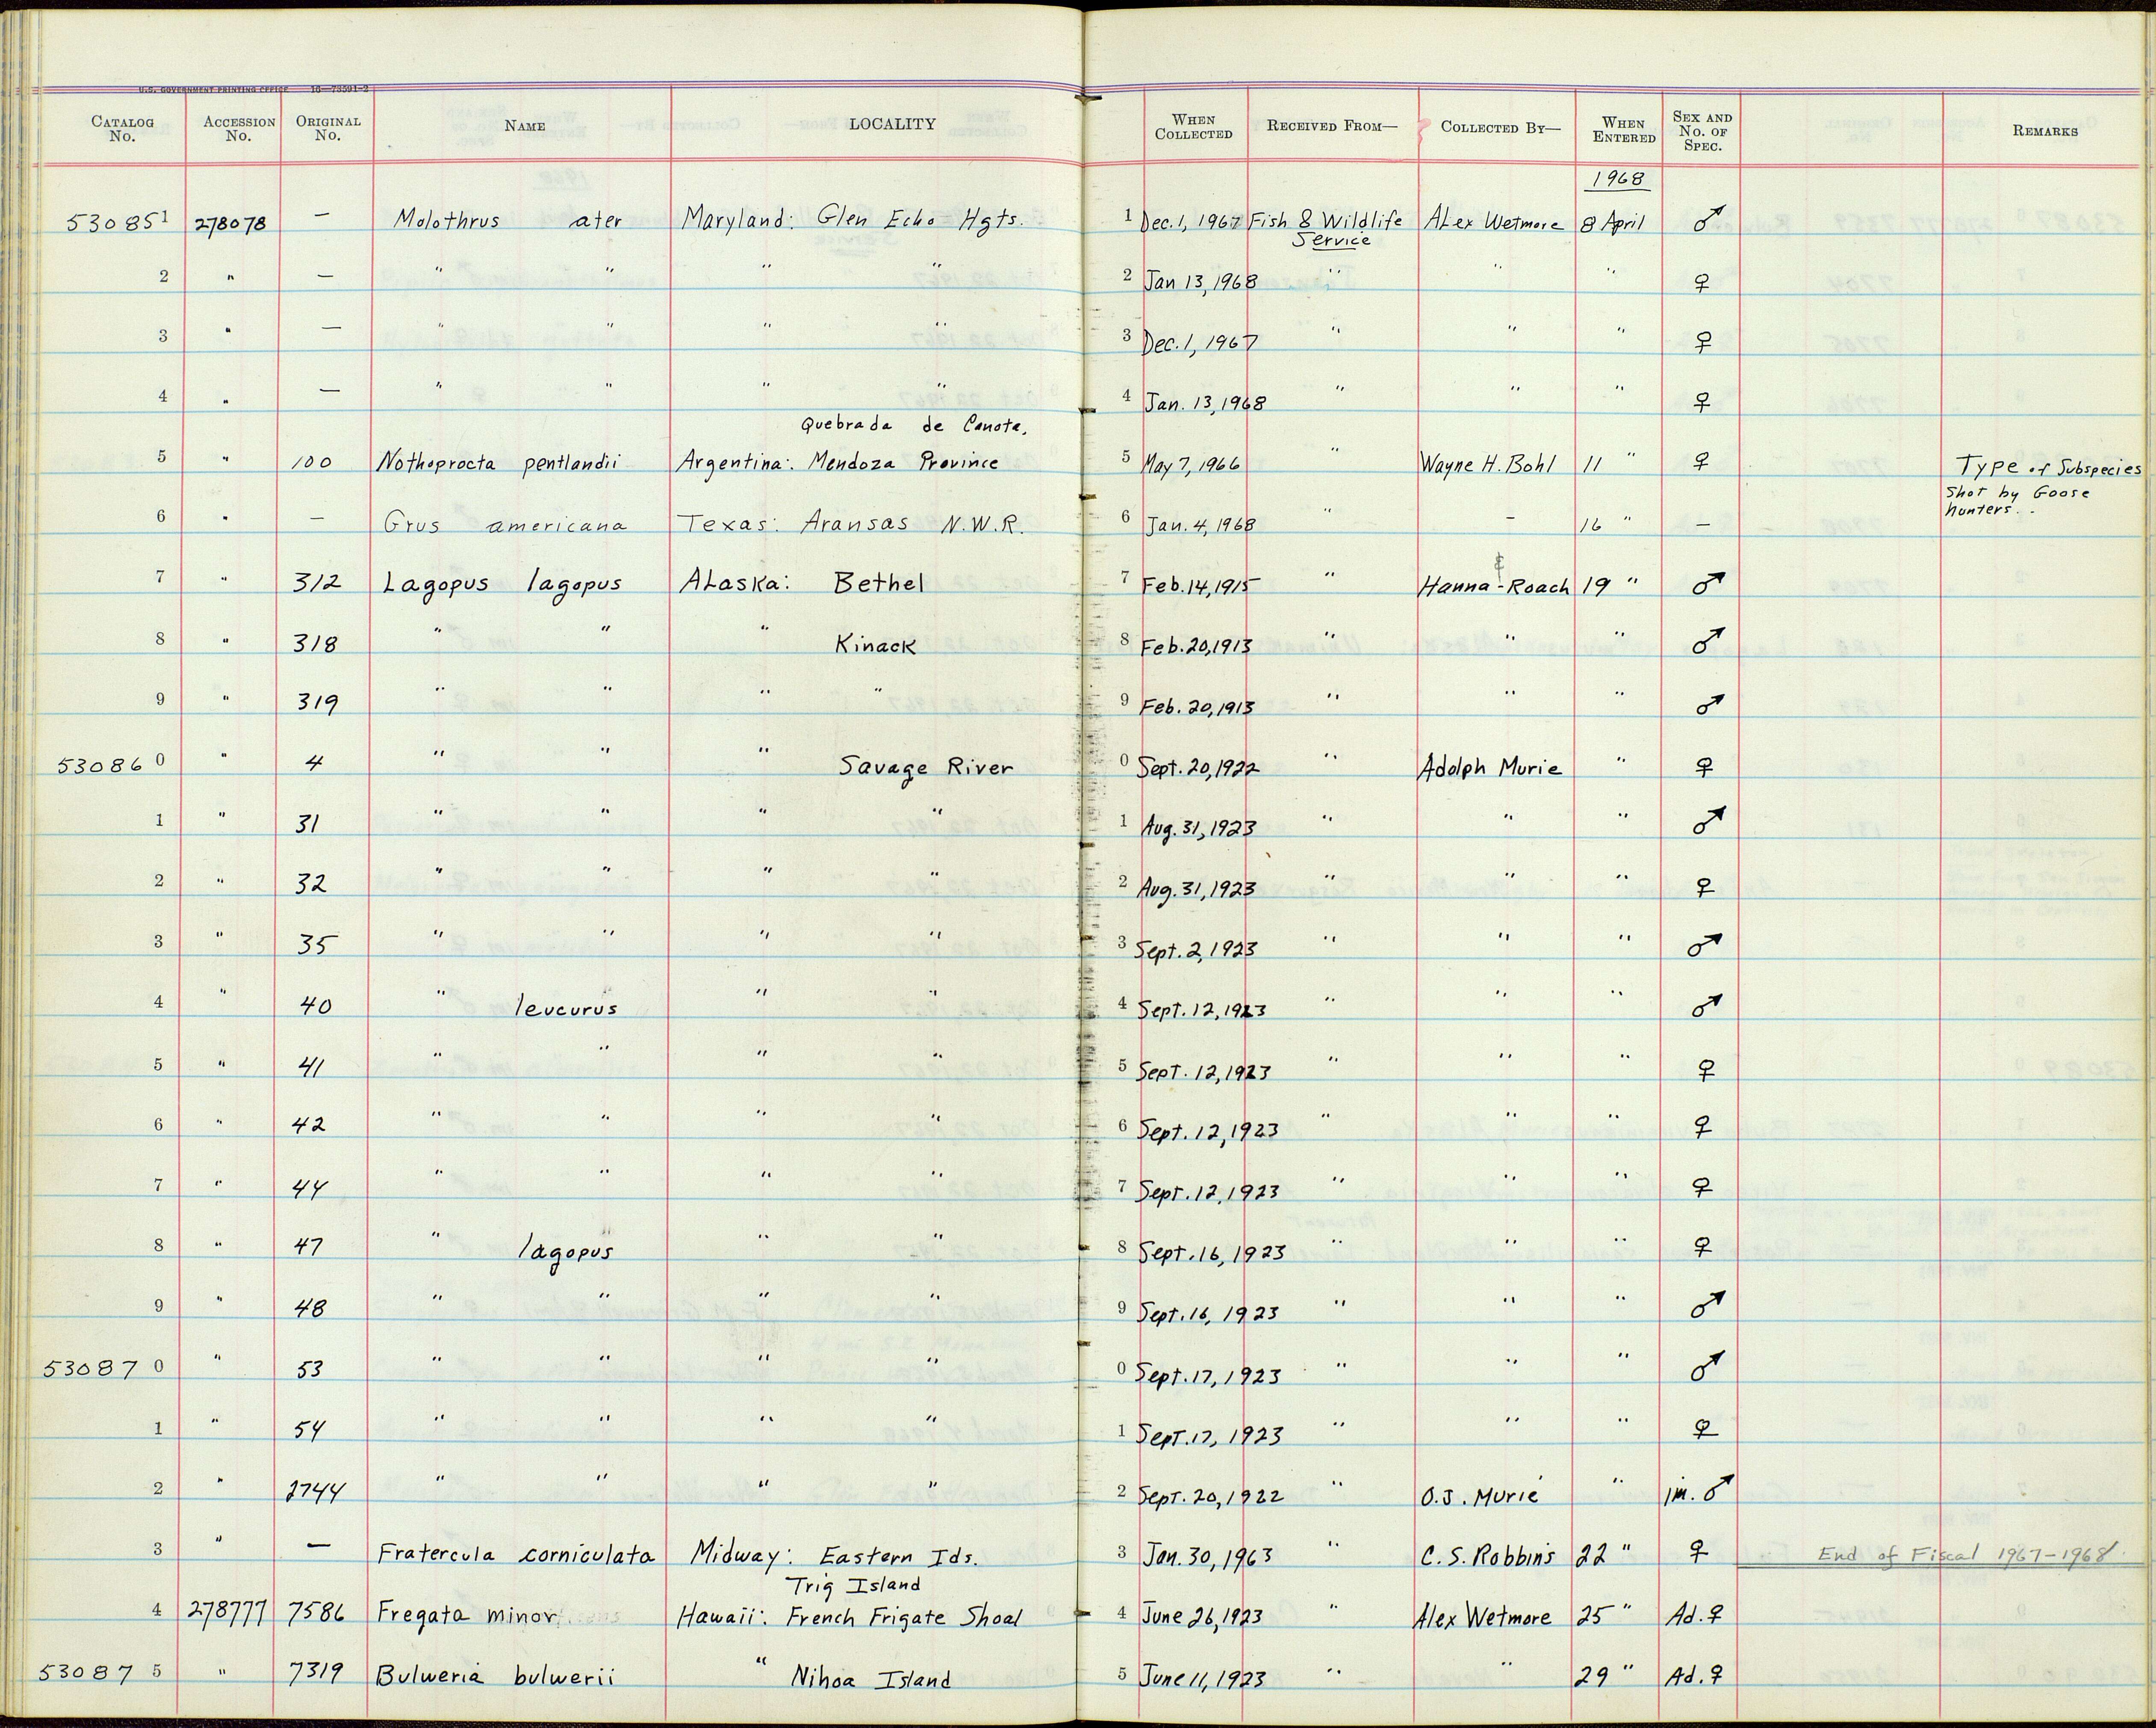 U.S. GOVERNMENT PRINTING OFFICE 16—73591-2
CATALOG No. ACCESSION No. ORIGINAL No. NAME LOCALITY WHEN COLLECTED RECEIVED FROM— COLLECTED BY— WHEN ENTERED SEX AND No. OF SPEC. REMARKS
1968
530851 278078 — Molothrus ater Maryland: Glen Echo Hgts. 1 Dec. 1, 1967 Fish & Wildlife Service Alex Wetmore 8 April ♂
2 " — " " " " 2 Jan 13, 1968 " " " ♀
3 " — " " " " 3 Dec. 1, 1967 " " " ♀
4 " — " " " " 4 Jan. 13, 1968 " " " ♀
Quebrada de Canota,
5 " 100 Nothoprocta pentlandii Argentina: Mendoza Province 5 May 7, 1966 " Wayne H. Bohl 11 " ♀ Type of Subspecies
6 " — Grus americana Texas: Aransas N.W.R. 6 Jan. 4, 1968 " — 16 " — Shot by Goose hunters..
7 " 312 Lagopus lagopus Alaska: Bethel 7 Feb. 14, 1915 " Hanna & - Roach 19 " ♂
8 " 318 " " " Kinack 8 Feb. 20, 1913 " " " ♂
9 " 319 " " " " 9 Feb. 20, 1913 " " " ♂
530860 " 4 " " " Savage River 0 Sept. 20, 1922 " Adolph Murie " ♀
1 " 31 " " " " 1 Aug. 31, 1923 " " " ♂
2 " 32 " " " " 2 Aug. 31, 1923 " " " ♀
3 " 35 " " " " 3 Sept. 2, 1923 " " " ♂
4 " 40 " leucurus " " 4 Sept. 12, 1923 " " " ♂
5 " 41 " " " " 5 Sept. 12, 1923 " " " ♀
6 " 42 " " " " 6 Sept. 12, 1923 " " " ♀
7 " 44 " " " " 7 Sept. 12, 1923 " " " ♀
8 " 47 " lagopus " " 8 Sept. 16, 1923 " " " ♀
9 " 48 " " " " 9 Sept. 16, 1923 " " " ♂
530870 " 53 " " " " 0 Sept. 17, 1923 " " " ♂
1 " 54 " " " " 1 Sept. 17, 1923 " " " ♀
2 " 2744 " " " " 2 Sept. 20, 1922 " O.J. Murie " im. ♂
3 " — Fratercula corniculata Midway: Eastern Ids. 3 Jan. 30, 1963 " C. S. Robbins 22 " ♀ End of Fiscal 1967-1968
Trig Island
4 278777 7586 Fregata minor Hawaii: French Frigate Shoal 4 June 26, 1923 " Alex Wetmore 25 " Ad. ♀
530875 " 7319 Bulweria bulwerii " Nihoa Island 5 June 11, 1923 " " 29 " Ad. ♀